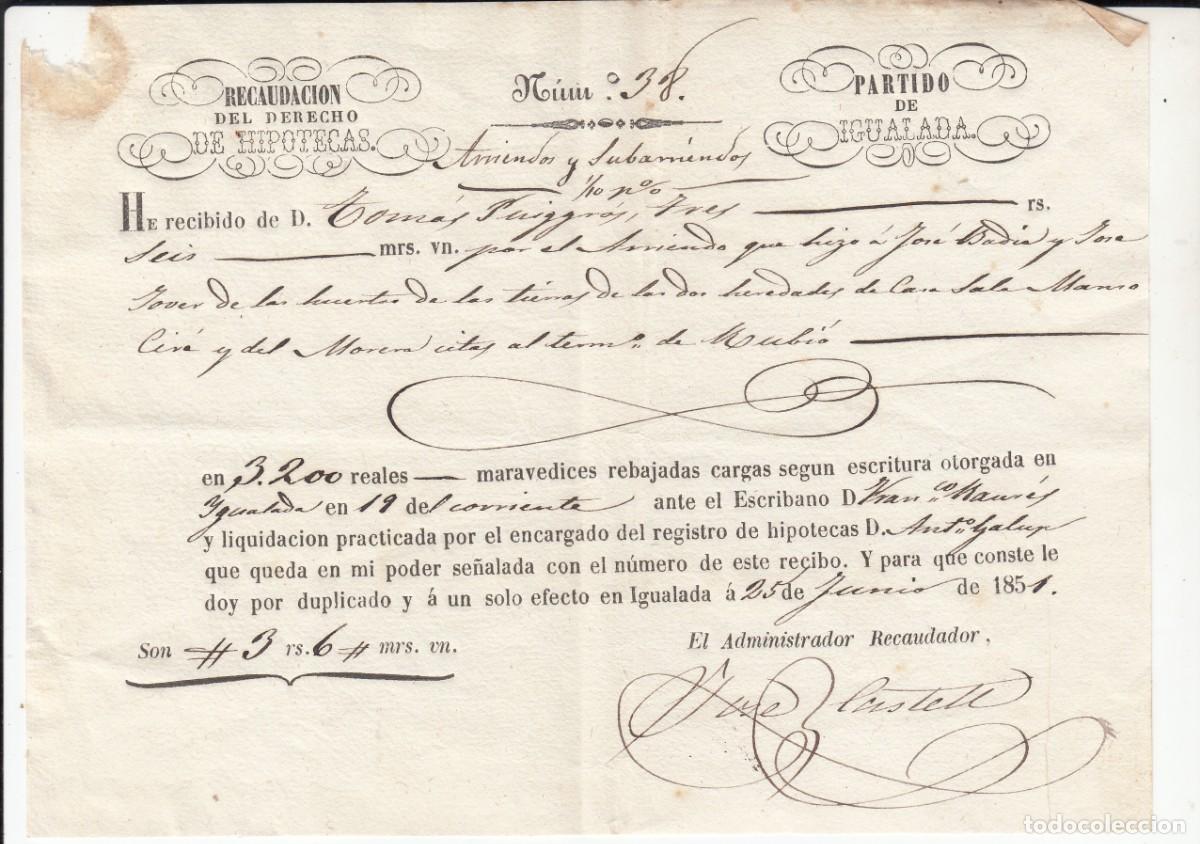 RECAUDACION
DEL DERECHO
DE HIPOTECAS.
Núm.º 38.
PARTIDO
DE
IGUALADA.
Arriendos y Subarriendos
1/10 p%
HE recibido de D. Tomás Puiggrós, Tres rs.
seis mrs. vn. por el Arriendo que hizo á José Badia y Jose
Jover de las huertas de las tierras de las dos heredades de Casa Sala Manso
y del Morera citas al term.º de Rubió
en 3.200 reales maravedices rebajadas cargas segun escritura otorgada en
Ygualada en 19 del corriente ante el Escribano D. Fran.co
y liquidacion practicada por el encargado del registro de hipotecas D. Ant.º
que queda en mi poder señalada con el número de este recibo. Y para que conste le
doy por duplicado y á un solo efecto en Igualada á 25 de Junio de 1851.
Son # 3 rs. 6 # mrs. vn.
El Administrador Recaudador,
Jose Castell
todocoleccion